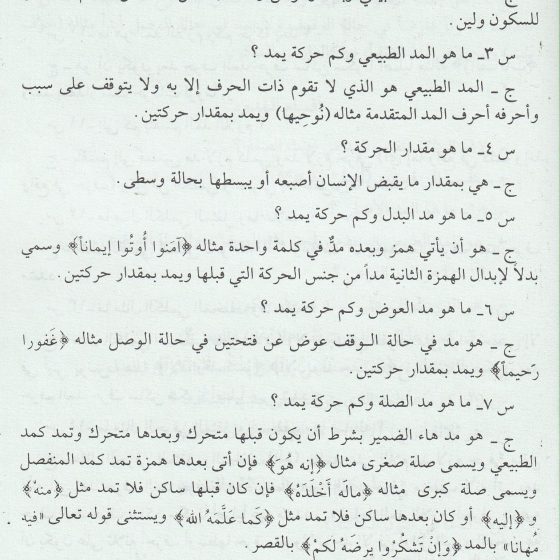 للسكون ولين.
س ٣ـ ما هو المد الطبيعي وكم حركة يمد ؟
ج ـ المد الطبيعي هو الذي لا تقوم ذات الحرف إلا به ولا يتوقف على سبب
وأحرفه أحرف المد المتقدمة مثاله (نُوحِيها) ويمد بمقدار حركتين.
س ٤ـ ما هو مقدار الحركة ؟
ج ـ هي بمقدار ما يقبض الإنسان أصبعه أو يبسطها بحالة وسطى.
س ٥ـ ما هو مد البدل وكم حركة يمد ؟
ج ـ هو أن يأتي همز وبعده مدٌّ في كلمة واحدة مثاله ﴿آمَنوا أُوتُوا إيماناً﴾ وسمي
بدلاً لإبدال الهمزة الثانية مداً من جنس الحركة التي قبلها ويمد بمقدار حركتين.
س ٦ـ ما هو مد العوض وكم حركة يمد ؟
ج ـ هو مد في حالة الوقف عوض عن فتحتين في حالة الوصل مثاله ﴿غَفورا
رَحيماً﴾ ويمد بمقدار حركتين.
س ٧ـ ما هو مد الصلة وكم حركة يمد ؟
ج ـ هو مد هاء الضمير بشرط أن يكون قبلها متحرك وبعدها متحرك وتمد كمد
الطبيعي ويسمى صلة صغرى مثال ﴿إنه هُوَ﴾ فإن أتى بعدها همزة تمد كمد المنفصل
ويسمى صلة كبرى مثاله ﴿مالَه أَخْلَدَهُ﴾ فإن كان قبلها ساكن فلا تمد مثل ﴿منهُ﴾
و ﴿إليه﴾ أو كان بعدها ساكن فلا تمد مثل ﴿كَما عَلَّمَهُ الله﴾ ويستثنى قوله تعالى «فيه
مُهانا» بالمد ﴿وَإِنْ تَشْكُرُوا يرضَهُ لكمْ﴾ بالقصر.